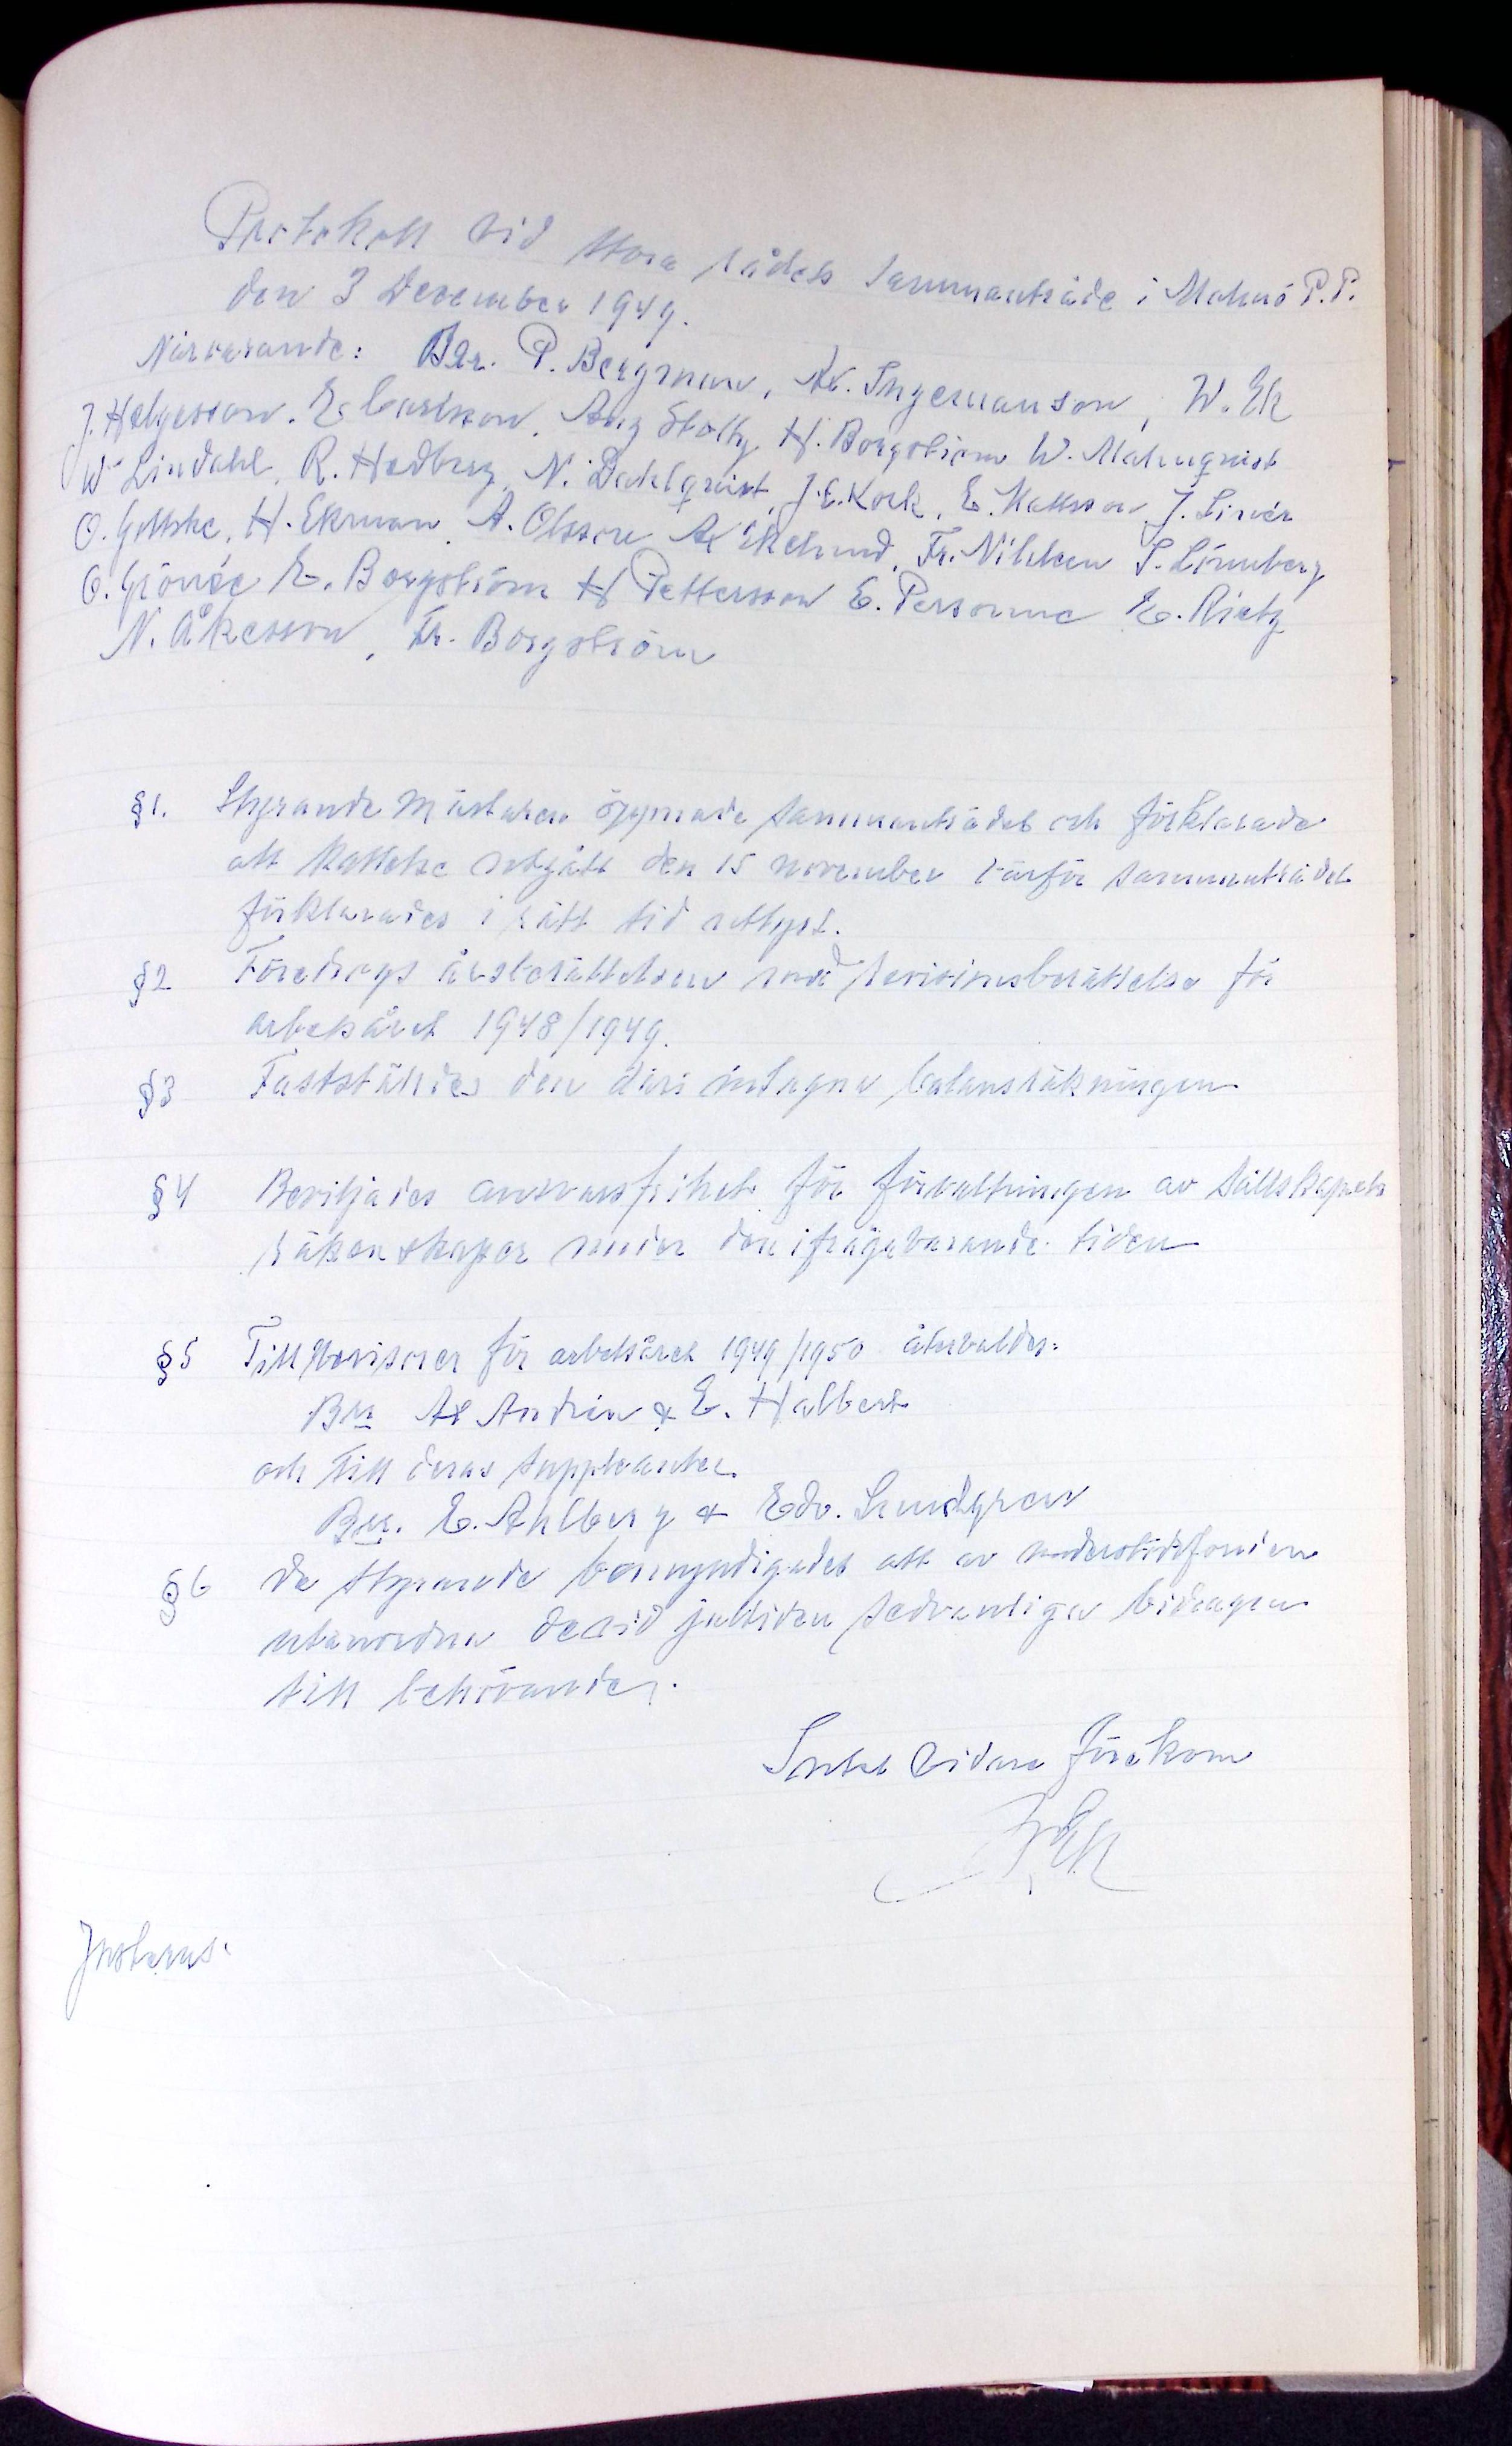 Protokoll vid Stora rådets sammanträde i Malmö P.P.
den 3 December 1949.
Närvarande: Bdr. P. Bergman, Ax. Ingemanson, W. Ek
J. Helgesson. E. Carlsson. Aug Stoltz H. Borgström W. Malmquist
W Lindahl, R. Hedberg, N. Dahlqvist, J.E. Kock, E. Mattsson J. Linér
O. Gottske, H. Ekman. A. Olsson Ax Ekelund, Fr. Nihlèen S. Lönnberg
O. Grönée E. Borgström H Pettersson E. Personne E. Rietz
N. Åkesson, Fr. Borgström
§1. Styrande Mästaren öppnade sammanträdet och förklarade
att kallelse utgått den 15 november varför sammanträdet
förklarades i rätt tid utlyst.
§2 Föredrogs årsberättelsen med revisionsberättelse för
arbetsåret 1948/1949.
§3 Fastställdes den däri intagna balansräkningen
§4 Beviljades ansvarsfrihet för förvaltningen av Sällskapets
räkenskaper under den ifrågavarande tiden
§5 Till revisorer för arbetsåret 1949/1950 återvaldes:
Brr Ax Andrén & E. Halbert
och till deras suppleanter.
Brr. E. Ahlberg & Edv. Lundgren
§6 De styrande bemyndigades att av understödsfonden
utanordna de vid jultiden sedvanliga bidragen
till behövande.
Intet vidare förekom
W Ek
Justeras.